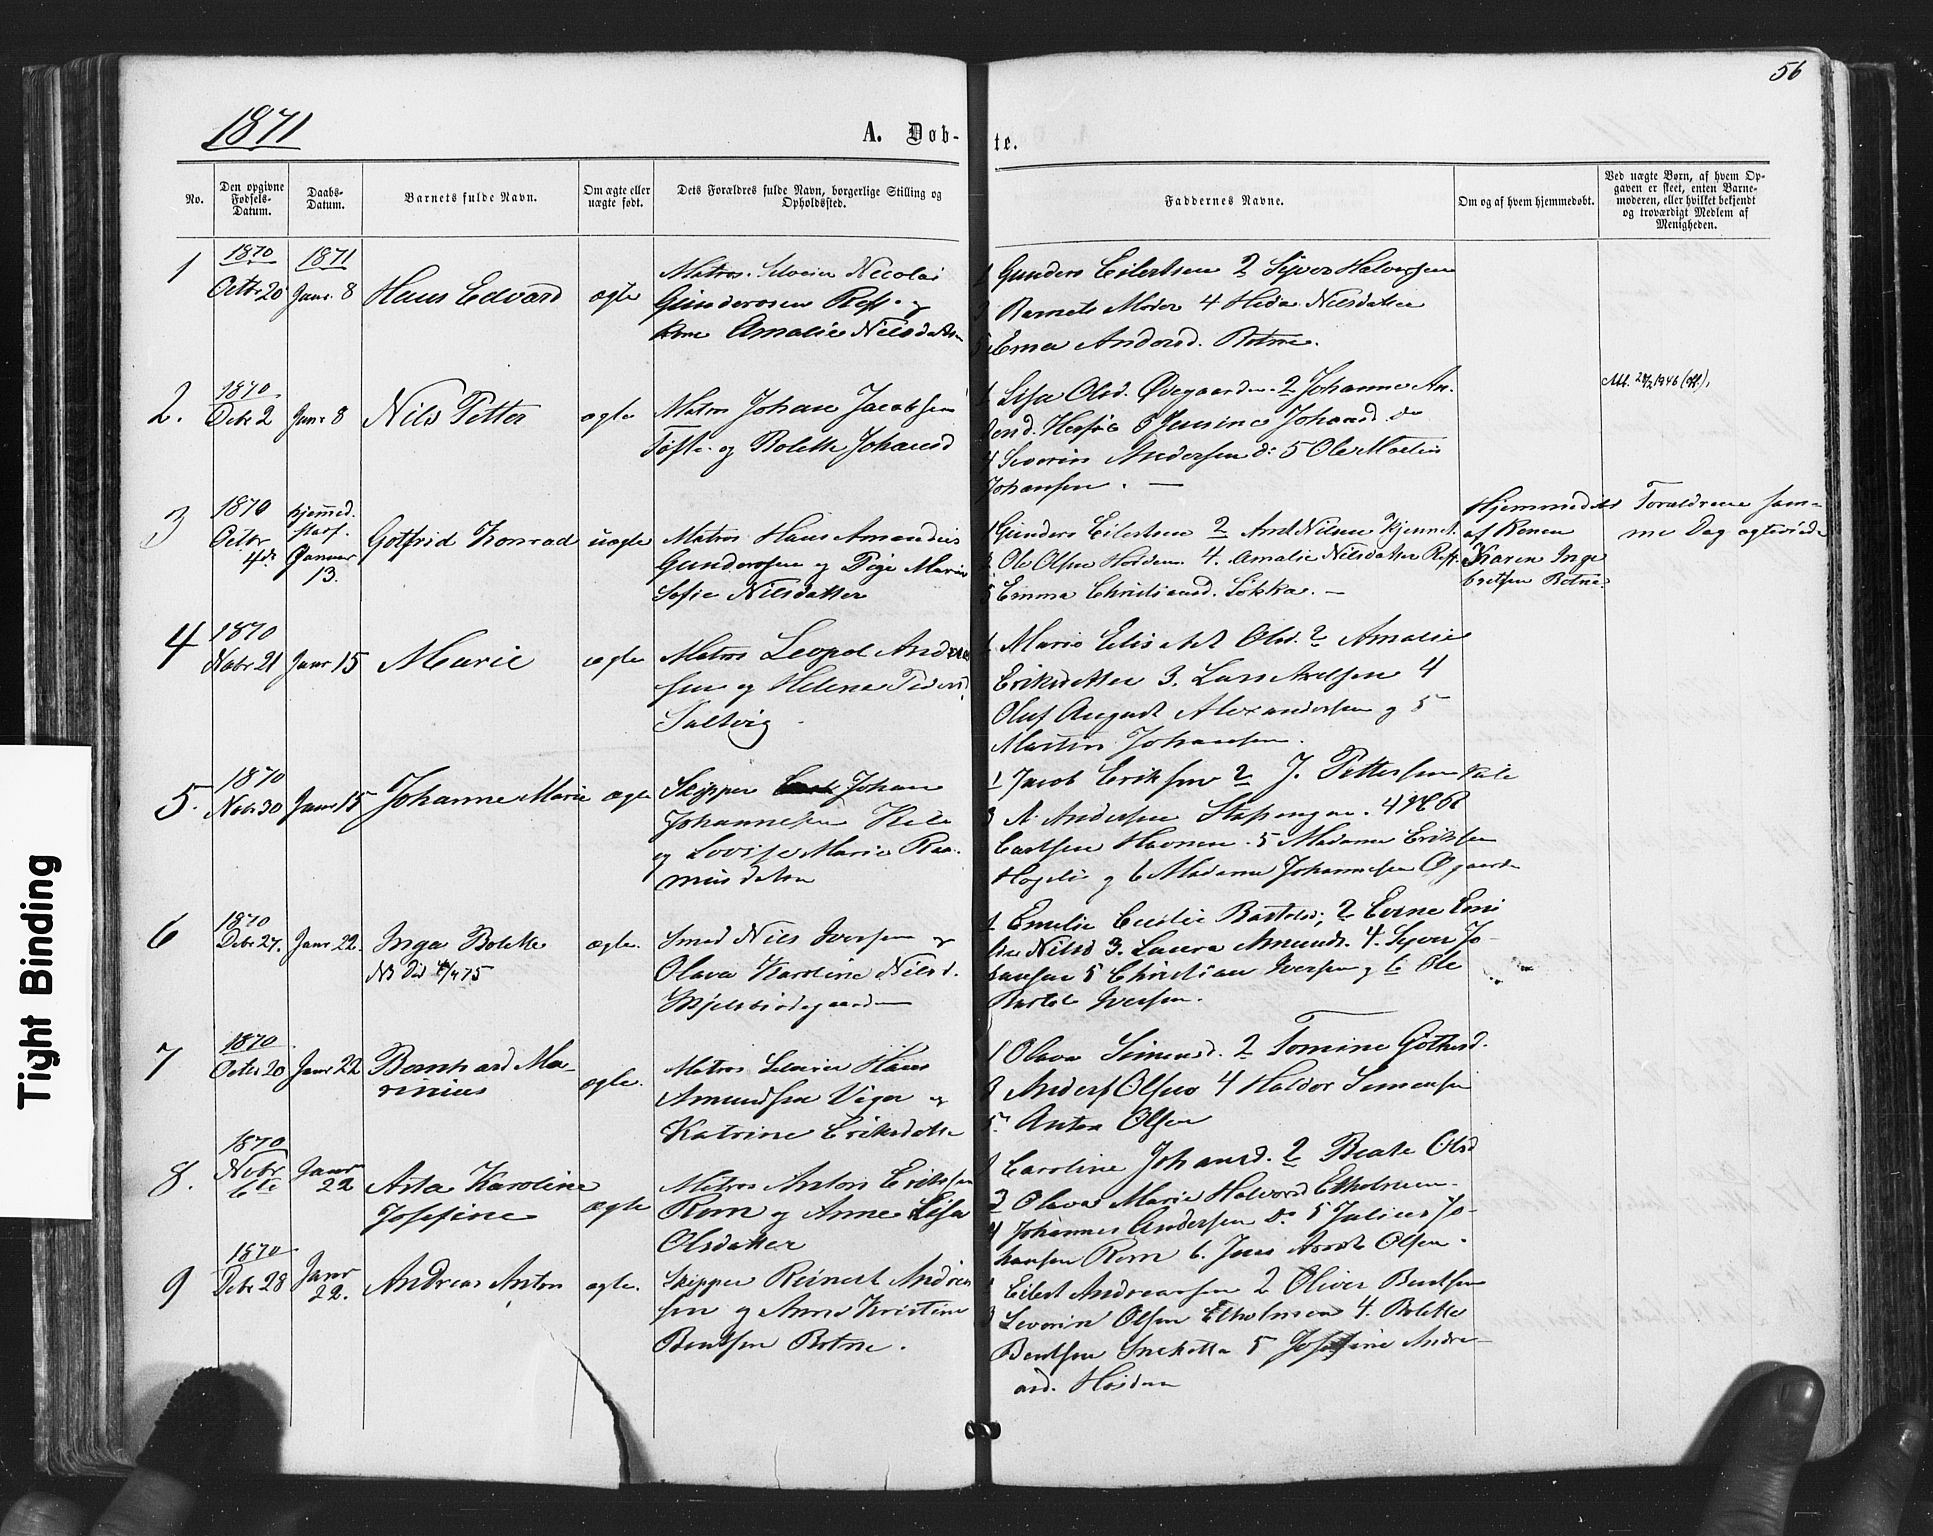 56
1871
A. Døb-
te.
No.
Den opgivne
Fødsels-
Datum.
Daabs-
Datum.
Barnets fulde Navn.
Om ægte eller
uægte født.
Dets Forældres fulde Navn, borgerlige Stilling og
Opholdssted.
Faddernes Navne.
Om og af hvem hjemmedøbt.
Ved uægte Børn, af hvem Op-
gaven er skeet, enten Barne-
moderen, eller hvilket bekjendt
og troværdigt Medlem af
Menigheden.
1
1870
Octbr 20
1871
Janr. 8
Hans Edvard
ægte
Matros Nicolai
Gunderosen og
Kone Amalie Nilsdatter
1 Gunders Eilertsen 2 Syver Halvorsen
3 Barnets Moder 4 Nilsdatter
5 Andersd. Botne.
2.
1870
Debr 2
Janr 8
Nils Petter
ægte
Matros Johan Jacobsen
Tofte og Bolette Johansd
1 Lisa Olsd. Øvegaarden 2 Johanne An-
3 Johansd. do
4 Severin Andersen do 5 Ole Martin
Johansen. —
3
1870
Octbr
4de
hjemmed.
Januar
13.
Gotfrid Konrad
uægte
Matros Hans Amandus
Gunderosen og Pige Marie
Sofie Nilsdatter
1 Gunders Eilertsen 2 Ant Nilsen
3 Ole Olsen 4. Amalie Nilsdatter
5 Emma Christiansd. Løkka. —
Hjemmedøbt
af Konen
Karen Inge
bretsen Botne.
Forældrene sam-
me Dag ægteviede
4
1870
Nobr 21
Janr 15
Marie
ægte
Matros Leopol Andrea
sen og Helene Pedersd
Saltvig
1 Marie Elisabet Olsd. 2 Amalie
Eriksdatter 3. Lars Axelsen 4
Oluf August Alexandersen og 5
Martin Johansen.
5.
1870
Nobr 30
Janr 15
Johanne Marie
ægte
Skipper Johan
Johannesen
og Lovise Marie Ras-
musdatter
1 Jacob Eriksen 2 J. Pettersen
3 A. Andersen Stapangen. 4
Carlsen Havnen. 5 Madame Eriksen
og 6 Madame Johannesen
6
1870
Debr 27.
Janr 22.
Inga Bolette
NB Død
ægte.
Smed Nils Iversen og
Olava Karoline Nilsd.
1 Emelie Cecilie 2
Nilsd 3. Laura Amunds. 4. Syver Jo-
hansen 5 Christian Iversen og 6 Ole
Iversen.
7
1870
Octbr 20
Janr 22
Bernhard Ma-
rinius
ægte.
Matros Hans
Amundsen og
Katrine Eriksdatter
1 Olava Simensd. 2 Tomine
3 Anders Olsen 4 Haldor Simensen
5. Anton Olsen
8.
1870
Nobr
6te
Janr
22
Asta Karoline
Josefine
ægte
Matros Anton Eriksen
Rom og Anne Lisa
Olsdatter
1 Caroline Johansd. 2 Beate Olsd
3 Olava Marie Halvorsd Ekholmen.
4 Johannes Andersen do 5 Julius Jo-
hansen Rom 6. Jens Olsen.
9
1870
Debr 28
Janr
22.
Andreas Anton
ægte.
Skipper Reinert Andrea
sen og Anne Kristine
Bentsen Botne.
1 Eilert Andreassen 2 Oliver Bentsen
3 Severin Olsen Ekholmen 4. Bolette
Bentsen 5 Josefine Andre-
asd.
Tight Binding